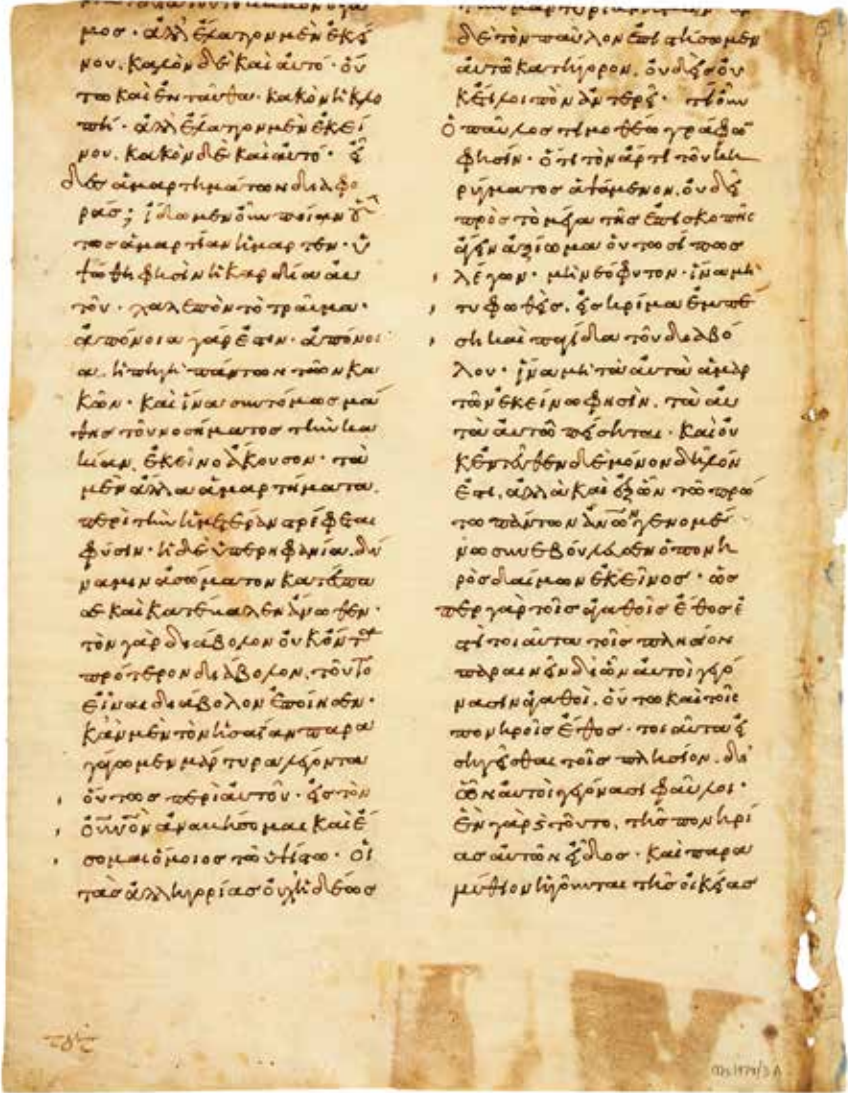 μος· ἀλλ' ἔλαττον μὲν ἐκεί
νου, καλὸν δὲ καὶ αὐτό· οὕ
τω καὶ ἐνταῦθα· κακὸν ἡ κλο
πή· ἀλλ' ἔλαττον μὲν ἐκεί
νου. κακὸν δὲ καὶ αὐτό· εἶ
δες ἁμαρτημάτων διαφο
ράς; ἴδωμεν οὖν ποίαν οὗ
τος ἁμαρτίαν ἥμαρτεν· ὑ
ψώθη φησὶν ἡ καρδία αὐ
τοῦ· χαλεπὸν τὸ τραῦμα·
ἀπόνοια γάρ ἐστιν· ἀπόνοι
α, ἡ πηγὴ πάντων τῶν κα
κῶν· καὶ ἵνα συντόμως μά
θης τοῦ νοσήματος τὴν κα
κίαν, ἐκεῖνο ἄκουσον· τὰ
μὲν ἄλλα ἁμαρτήματα,
περὶ τὴν ἡμετέραν τρέφεται
φύσιν· ἡ δὲ ὑπερηφανία, δύ
ναμιν ἀσώματον κατέσπα
σε καὶ κατέβαλεν ἄνωθεν·
τὸν γὰρ διάβολον οὐκ ὄντα
πρότερον διάβολον, τοῦτο
εἶναι διάβολον ἐποίησεν·
κἂν μὲν τὸν ἡσαΐαν παρα
γάγωμεν μάρτυρα λέγοντα
οὕτως περὶ αὐτοῦ· εἰς τὸν
οὐνὸν ἀναβήσομαι καὶ ἔ
σομαι ὅμοιος τῶ ὑψίστω· οἱ
τὰς ἀλληγορίας οὐχ ἡδέως
δὲ τὸν παῦλον ἐπιστήσωμεν
αὐτῶ κατήγορον, οὐδὲν οὐ
κέτι λοιπὸν ἀντερεῖ· τί οὖν
ὁ παῦλος τιμοθέω γράφων
φησίν· ὅτι τὸν ἄρτι τοῦ κη
ρύγματος ἁψάμενον, οὐ δεῖ
πρὸς τὸ μέγα τῆς ἐπισκοπῆς
ἄγειν ἀξίωμα οὕτωσί πως
λέγων· μὴ νεόφυτον· ἵνα μὴ
τυφωθεὶς, εἰς κρίμα ἐμπέ
ση καὶ παγίδα τοῦ διαβό
λου· ἵνα μὴ τὰ αὐτὰ ἁμαρ
τὼν ἐκείνω φησὶν, τὰ αὐ
τὰ αὐτῶ πείσηται· καὶ οὐ
κ ἐντεῦθεν δὲ μόνον δῆλόν
ἐστι, ἀλλὰ καὶ ἐξ ὧν τῶ πρώ
τω πάντων ἀνων γενομέ
νω συνεβούλευεν ὁ πονη
ρὸς δαίμων ἐκεῖνος· ὥσ
περ γὰρ τοῖς ἀγαθοῖς ἔθος ἐ
στὶ τοιαῦτα τοῖς πλησίον
παραινεῖν δι' ὧν αὐτοὶ γεγό
νασιν ἀγαθοί, οὕτω καὶ τοῖς
πονηροῖς ἔθος· τοιαῦτα εἰ
σηγεῖσθαι τοῖς πλησίον, δι'
ὧν αὐτοὶ γεγόνασι φαῦλοι·
ἓν γάρ ἐστι τοῦτο, τῆς πονηρί
ας αὐτῶν εἶδος· καὶ παρα
μύθιον ἡγοῦνται τῆς οἰκείας